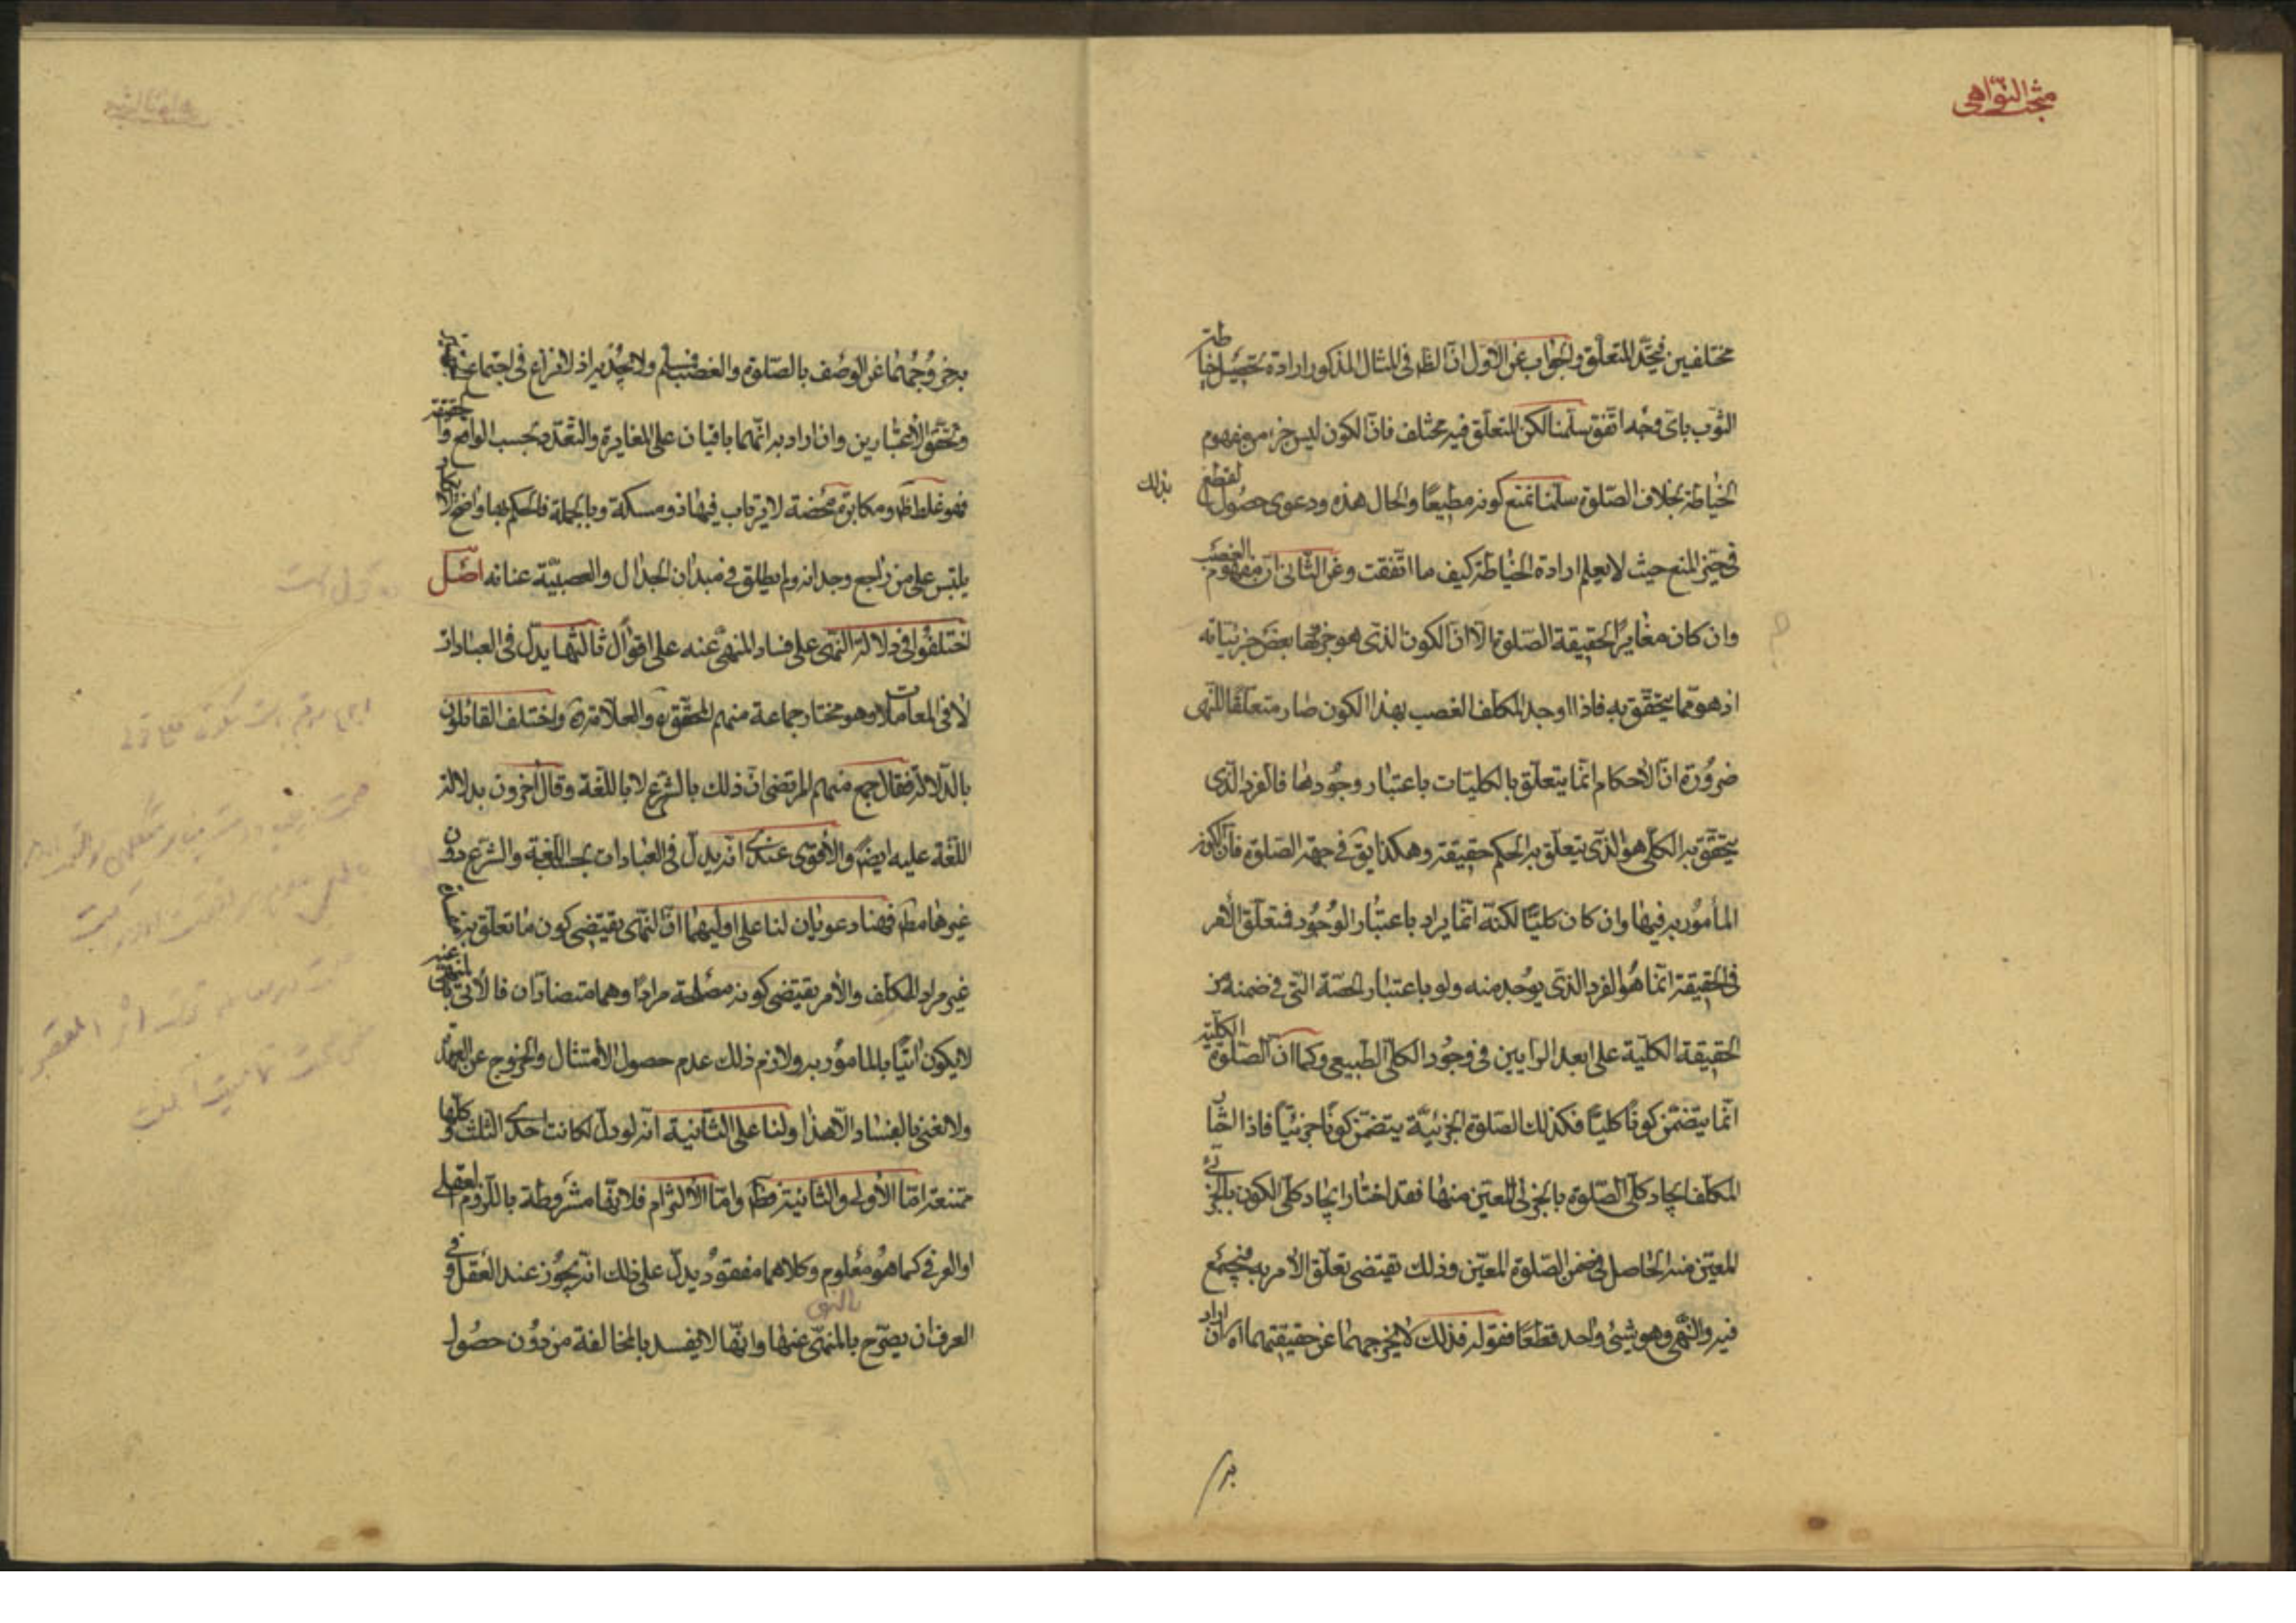 مبحث النواهی
مختلفين فيتحد المتعلق والجواب عن الاول ان الظ فى المثال المذكور ارادة تحصيل خياطة
الثوب باى وجه اتفق سلمنا لكن المتعلق فيه مختلف فان الكون ليس جزء من مفهوم
الخياطة بخلاف الصلوة سلمنا نمنع كونه مطيعا والحال هذه ودعوى حصول القطع بذلك
فى حيز المنع حيث لا يعلم ارادة الخياطة كيف ما اتفقت وعن الثانى ان مفهوم الغصب
وان كان مغايرا لحقيقة الصلوة الا ان الكون الذى هو جزئها بعض جزئياته
اذ هو مما يتحقق به فاذا اوجد المكلف الغصب بهذا الكون صار متعلقا للنهى
ضرورة ان الاحكام انما يتعلق بالكليات باعتبار وجودها فالفرد الذى
يتحقق به الكلى هو الذى يتعلق به الحكم حقيقة وهكذا يق فى جهة الصلوة فان الكون
المأمور به فيها وان كان كليا لكنه انما يراد باعتبار الوجود فمتعلق الأمر
فى الحقيقة انما هو الفرد الذى يوجد منه ولو باعتبار الحصة التى فى ضمنه من
الحقيقة الكلية على ابعد الرايين فى وجود الكلى الطبيعى وكما ان الصلوة الكلية
انما يتضمن كونا كليا فكذلك الصلوة الجزئية يتضمن كونا جزئيا فاذا اختار
المكلف ايجاد كلى الصلوة بالجزئى المعين منها فقد اختار ايجاد كلى الكون بالجزئى
المعين منه الحاصل فى ضمن الصلوة المعين وذلك تقتضى تعلق الأمر به فيجتمع
فيه والنهى وهو شيئ واحد قطعا فقوله فذلك لا يخرجهما عن حقيقتهما اه ان اراد
به
بخروجهما عن الوصف بالصلوة والغصب فمسلم ولا يجديه اذ لا نزاع فى اجتماع
وتحقق الاعتبارين وان اراد به انهما باقيان على المغايرة والتعدد بحسب الواقع والحقيقة
فهو غلط ظ ومكابرة محضة لا يرتاب فيها ذو مسكة وبالجملة فالحكم بها واضح لا يكاد
يلتبس على من راجع وجدانه ولم يطلق فى ميدان الجدال والعصبية عنانه اصل
اختلفوا فى دلالة النهى على فساد المنهى عنه على اقوال ثالثها يدل فى العبادات
لا فى المعاملات وهو مختار جماعة منهم المحقق ره والعلامة ره واختلف القائلون
بالدلالة فقال جمع منهم المرتضى ان ذلك بالشرع لا باللغة وقال اخرون بدلالة
اللغة عليه ايضا والأقوى عندى انه يدل فى العبادات بحسب اللغة والشرع دون
غيرها مط فهنا دعويان لنا على اوليهما ان النهى يقتضى كون ما تعلق به مفسدة
غير مراد للمكلف والأمر يقتضى كونه مصلحة مرادا وهما متضادان فالآتى بالمنهى عنه
لا يكون اتيا بالمامور به ولازم ذلك عدم حصول الأمتثال والخروج عن العهدة
ولا نعنى بالفساد الا هذا ولنا على الثانية انه لو دل لكانت احدى الثلث وكلها
ممتنعة اما الأولى والثانية فظ واما الألتزام فلانها مشروطة باللزوم العقلى
او العرفى كما هو معلوم وكلاهما مفقود يدل على ذلك انه يجوز عند العقل وفى
العرف ان يصرح بالنهى عنها وانها لا يفسد بالمخالفة من دون حصول